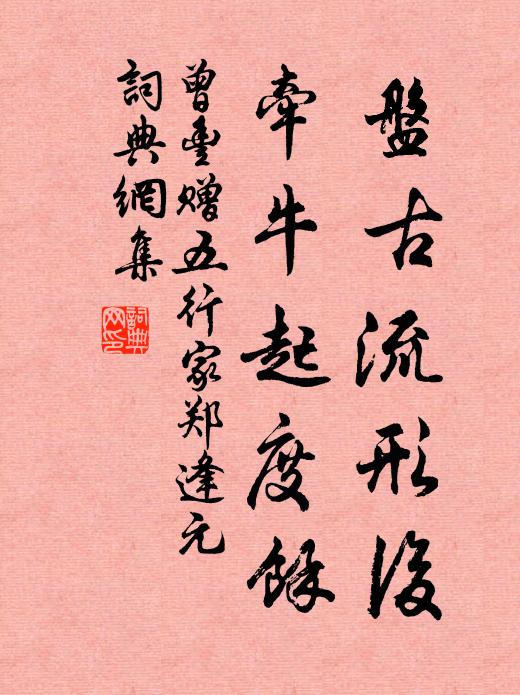 盤古流形後
牽牛起度餘
曾豐赠五行家郑逢元
詞典網集
詞典
网印